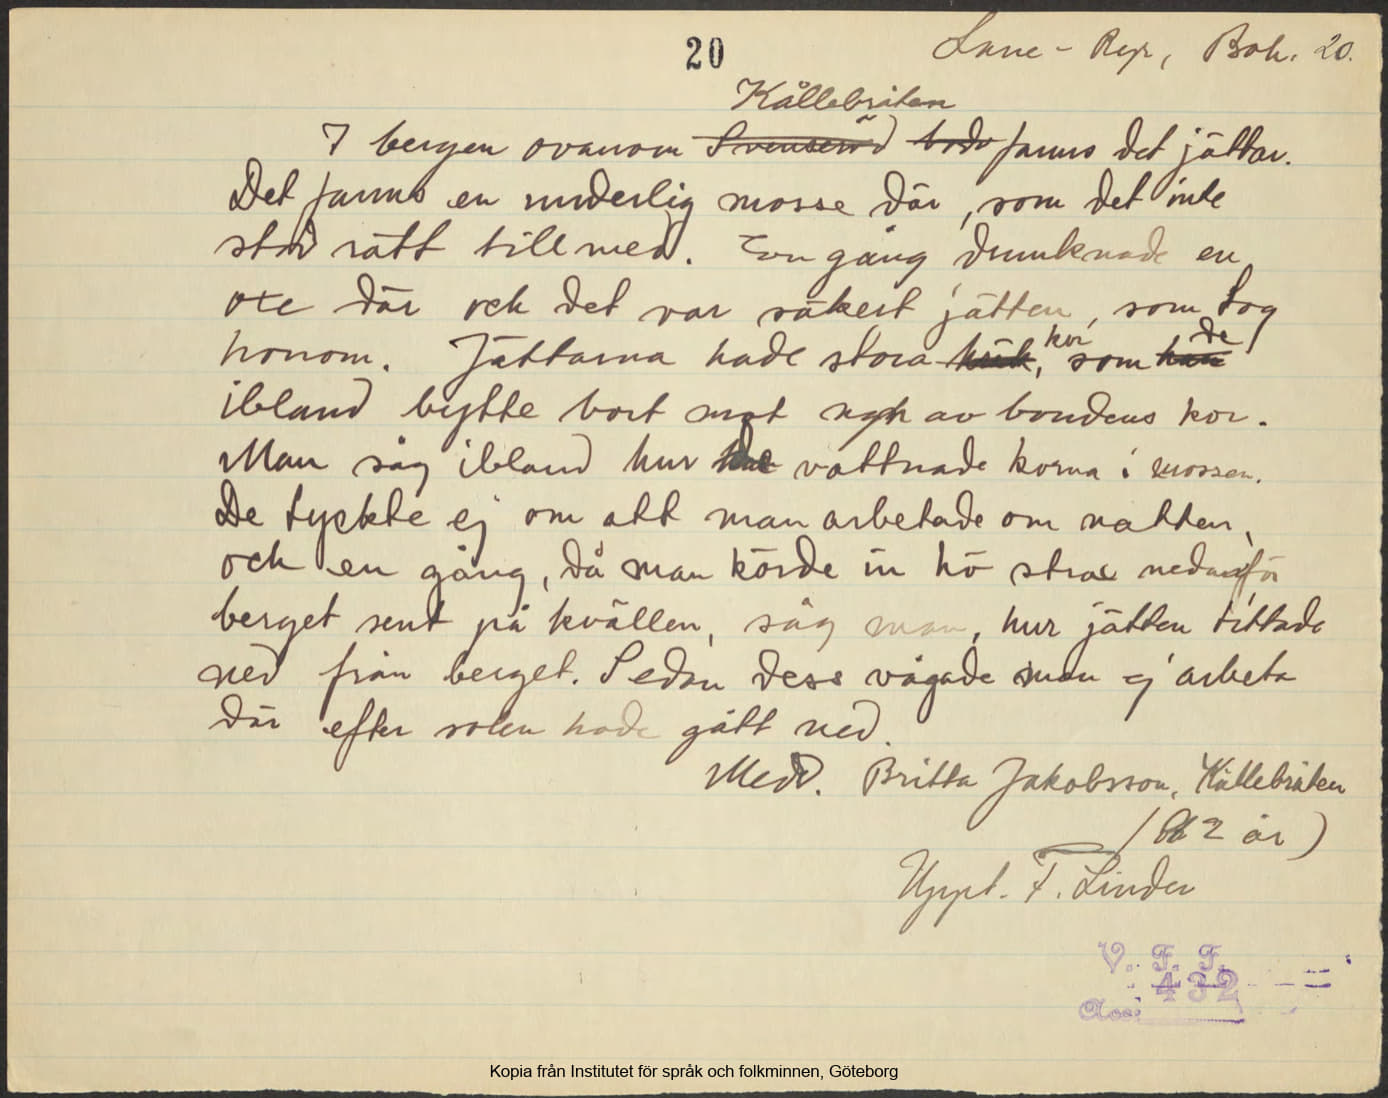 20
Lane-Ryr, Boh. 20.
Kållebråten
I bergen ovanom Svenseröd bodo fanns det jättar.
Det fanns en underlig mosse där, som det inte
stod rätt till med. En gång drunknade en
oxe där och det var säkert jätten, som tog
kor de
honom. Jättarna hade stora , som han
ibland bytte bort mot ngn av bondens kor.
Man såg ibland hur de vattnade korna i mossen.
De tyckte ej om att man arbetade om natten,
och en gång, då man körde in hö strax nedanför
berget sent på kvällen, såg man, hur jätten tittade
ned från berget. Sedan dess vågade man ej arbeta
där efter solen hade gått ned.
Medd. Britta Jakobsson, Kållebråten
(82 år)
Uppt. F. Linder
V. F. F.
432
Acc:
Kopia från Institutet för språk och folkminnen, Göteborg